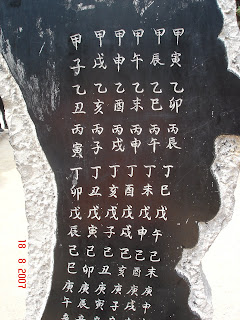 甲子乙丑丙寅丁卯戊辰己巳庚午
甲戌乙亥丙子丁丑戊寅己卯庚辰
甲申乙酉丙戌丁亥戊子己丑庚寅
甲午乙未丙申丁酉戊戌己亥庚子
甲辰乙巳丙午丁未戊申己酉庚戌
甲寅乙卯丙辰丁巳戊午己未庚申
18 8 2007